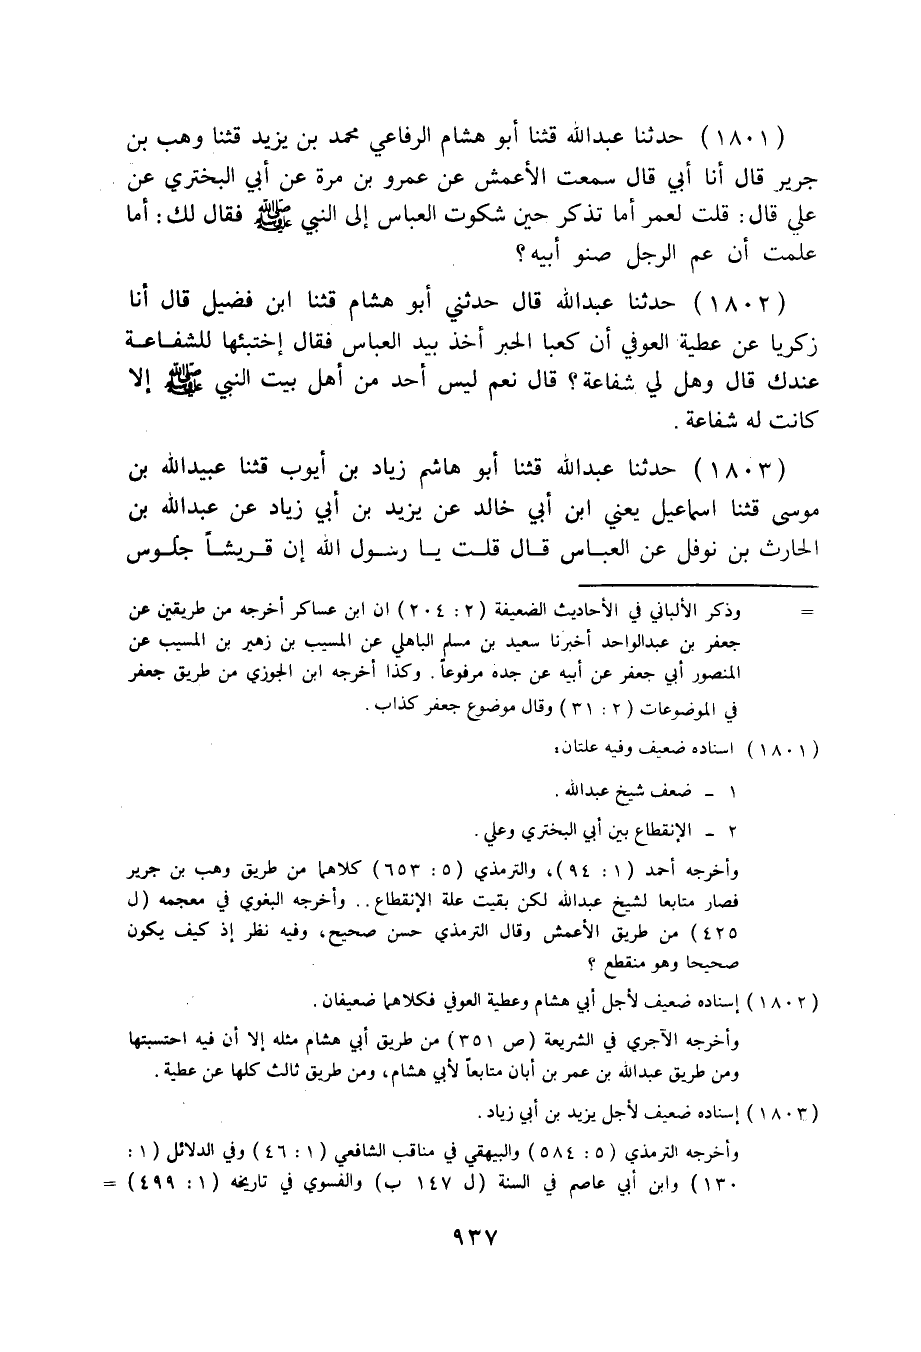 (١٨٠١) حدثنا عبدالله قثنا أبو هشام الرفاعي محمد بن يزيد قثنا وهب بن
جرير قال أنا أبي قال سمعت الأعمش عن عمرو بن مرة عن أبي البختري عن
علي قال: قلت لعمر أما تذكر حين شكوت العباس إلى النبي ﷺ فقال لك: أما
علمت أن عم الرجل صنو أبيه؟
(١٨٠٢) حدثنا عبدالله قال حدثني أبو هشام قثنا ابن فضيل قال أنا
زكريا عن عطية العوفي أن كعبا الحبر أخذ بيد العباس فقال إختبئها للشفاعة
عندك قال وهل لي شفاعة؟ قال نعم ليس أحد من أهل بيت النبي ﷺ إلا
كانت له شفاعة.
(١٨٠٣) حدثنا عبدالله قثنا أبو هاشم زياد بن أيوب قثنا عبيدالله بن
موسى قثنا اسماعيل يعني ابن أبي خالد عن يزيد بن أبي زياد عن عبدالله بن
الحارث بن نوفل عن العباس قال قلت يا رسول الله إن قريشاً جلوس
= وذكر الألباني في الأحاديث الضعيفة (٢: ٢٠٤) ان ابن عساكر أخرجه من طريقين عن
جعفر بن عبدالواحد أخبرنا سعيد بن مسلم الباهلي عن المسيب بن زهير بن المسيب عن
المنصور أبي جعفر عن أبيه عن جده مرفوعاً. وكذا أخرجه ابن الجوزي من طريق جعفر
في الموضوعات (٢: ٣١) وقال موضوع جعفر كذاب.
(١٨٠١) اسناده ضعيف وفيه علتان:
١ - ضعف شيخ عبدالله.
٢ - الإنقطاع بين أبي البختري وعلي.
وأخرجه أحمد (١: ٩٤)، والترمذي (٥: ٦٥٣) كلاهما من طريق وهب بن جرير
فصار متابعا لشيخ عبدالله لكن بقيت علة الإنقطاع.. وأخرجه البغوي في معجمه (ل
٤٢٥) من طريق الأعمش وقال الترمذي حسن صحيح، وفيه نظر إذ كيف يكون
صحيحا وهو منقطع؟
(١٨٠٢) إسناده ضعيف لأجل أبي هشام وعطية العوفي فكلاهما ضعيفان.
وأخرجه الآجري في الشريعة (ص ٣٥١) من طريق أبي هشام مثله إلا أن فيه احتسبتها
ومن طريق عبدالله بن عمر بن أبان متابعاً لأبي هشام، ومن طريق ثالث كلها عن عطية.
(١٨٠٣) إسناده ضعيف لأجل يزيد بن أبي زياد.
وأخرجه الترمذي (٥: ٥٨٤) والبيهقي في مناقب الشافعي (١: ٤٦) وفي الدلائل (١:
١٣٠) وابن أبي عاصم في السنة (ل ١٤٧ ب) والفسوي في تاريخه (١: ٤٩٩) =
٩٣٧